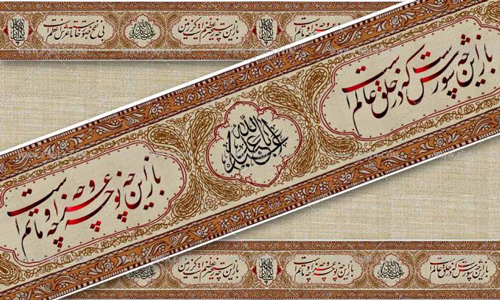 باز این چه نوحه و چه عزا و چه ماتم است
باز این چه رستخیز عظیم است کز زمین
بی نفخ صور خاسته تا عرش اعظم است
باز این چه شورش است که در خلق عالم است
اباعبدالله
باز این چه نوحه و چه عزا و چه ماتم است
باز این چه شورش است که در خلق عالم است
باز این چه نوحه و چه عزا و چه ماتم است
باز این چه رستخیز عظیم است کز زمین